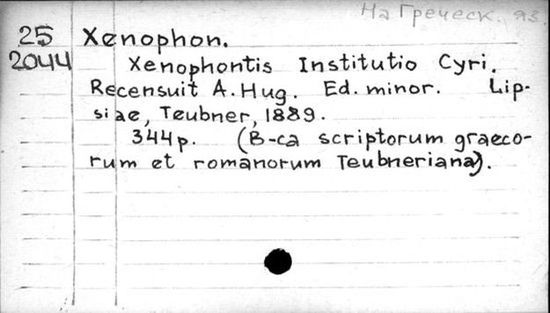 На Греческ. яз.
25 Xenophon.
2044 Xenophontis Institutio Cyri.
Recensuit A. Hug. Ed. minor. Lip-
siae, Teubner, 1889.
344 p. (B-ca scriptorum graeco-
rum et romanorum Teubneriana).